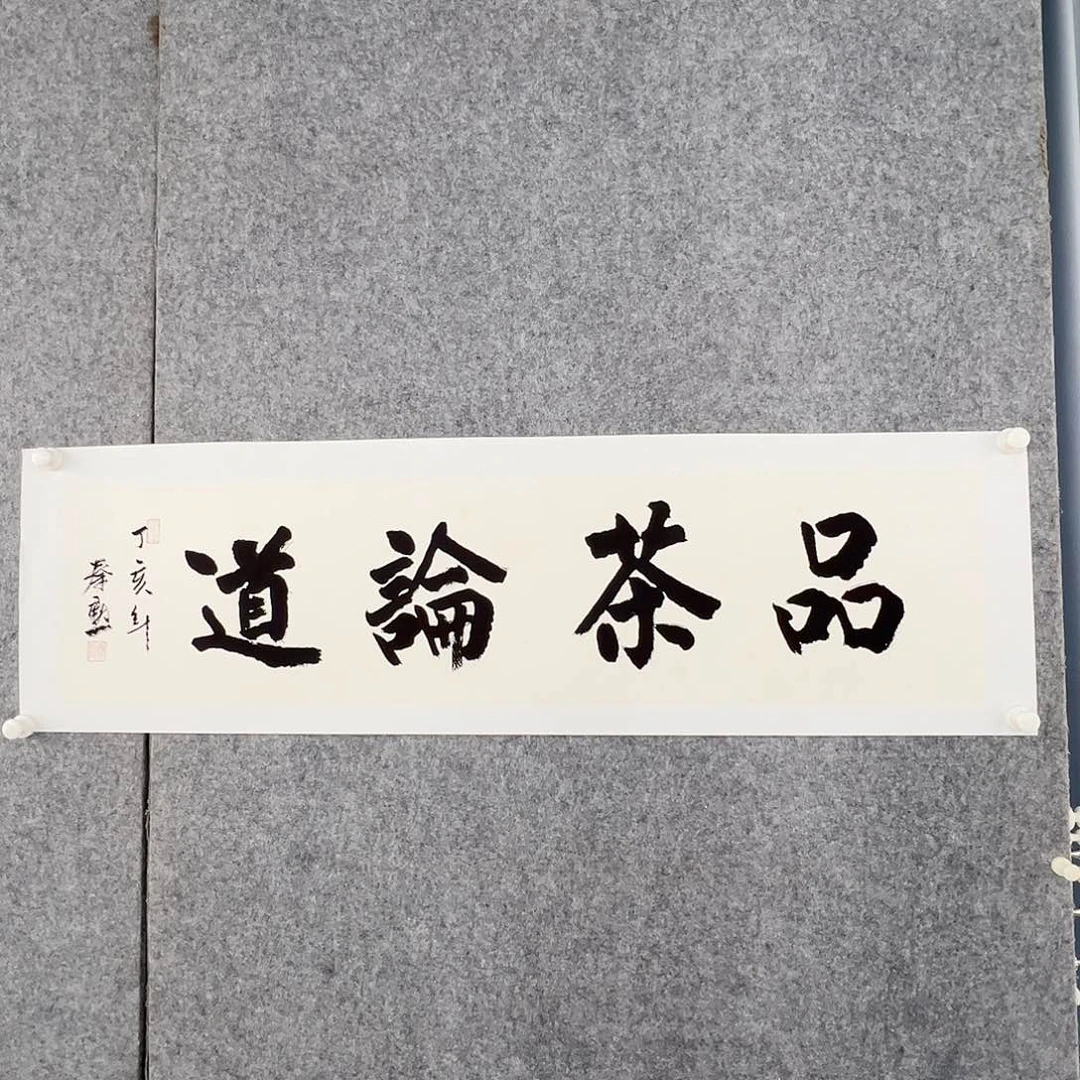 品茶論道
丁亥年
秦勳